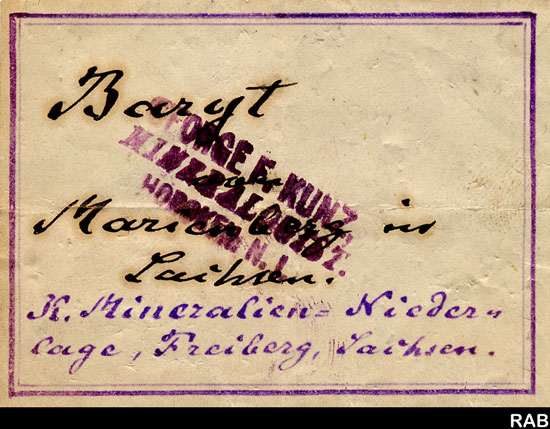 Baryt
GEORGE F. KUNZ,
MINERALOGIST.
HOBOKEN N. J.
von
Marienberg in
Sachsen.
K. Mineralien = Nieder=
lage, Freiberg, Sachsen.
RAB